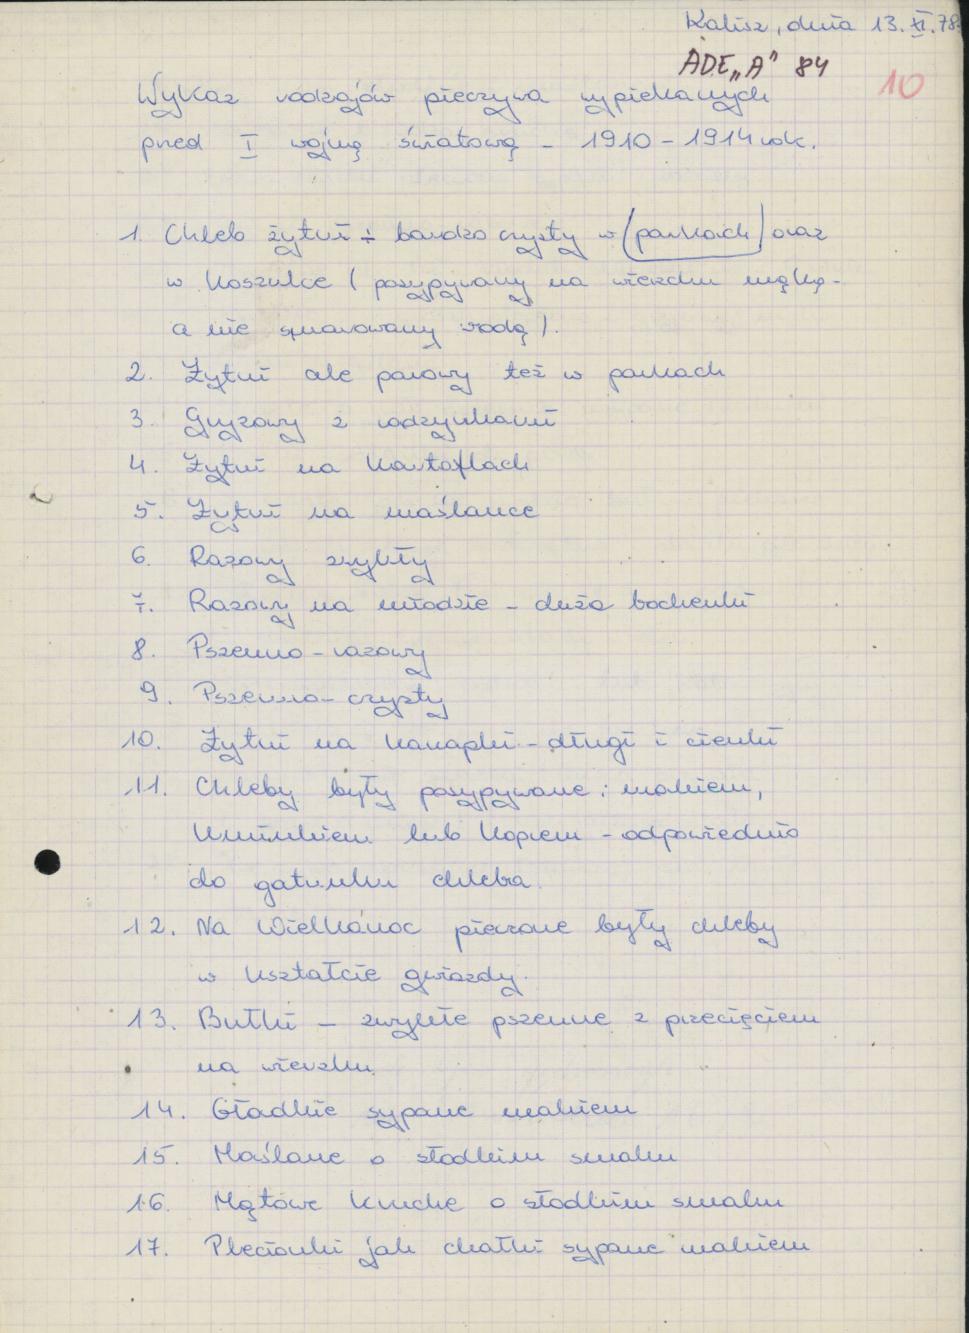 Kalisz, dnia 13.XI.78
ADE „A" 84
10
Wykaz rodzajów pieczywa wypiekanych
przed I wojną światową - 1910-1914 rok.
1. Chleb żytni ÷ bardzo czysty w (parkach) oraz
w koszulce (posypywany na wierzchu mąką -
a nie smarowany wodą).
2. Żytni ale parowy też w parkach
3. Gryzowy z rodzynkami
4. Żytni na kartoflach
5. Żytni na maślance
6. Razowy zwykły
7. Razowy na miodzie - duże bochenki
8. Pszenno-razowy
9. Pszenno-czysty
10. Żytni na kanapki - długi i cienki
11. Chleby były posypywane: makiem,
kminkiem lub koprem - odpowiednio
do gatunku chleba.
12. Na Wielkanoc pieczone były chleby
w kształcie gwiazdy.
13. Bułki - zwykłe pszenne z przecięciem
na wierzchu
14. Gładkie sypane makiem
15. Maślane o słodkim smaku
16. Mątowe kruche o słodkim smaku
17. Plecionki jak chałki sypane makiem